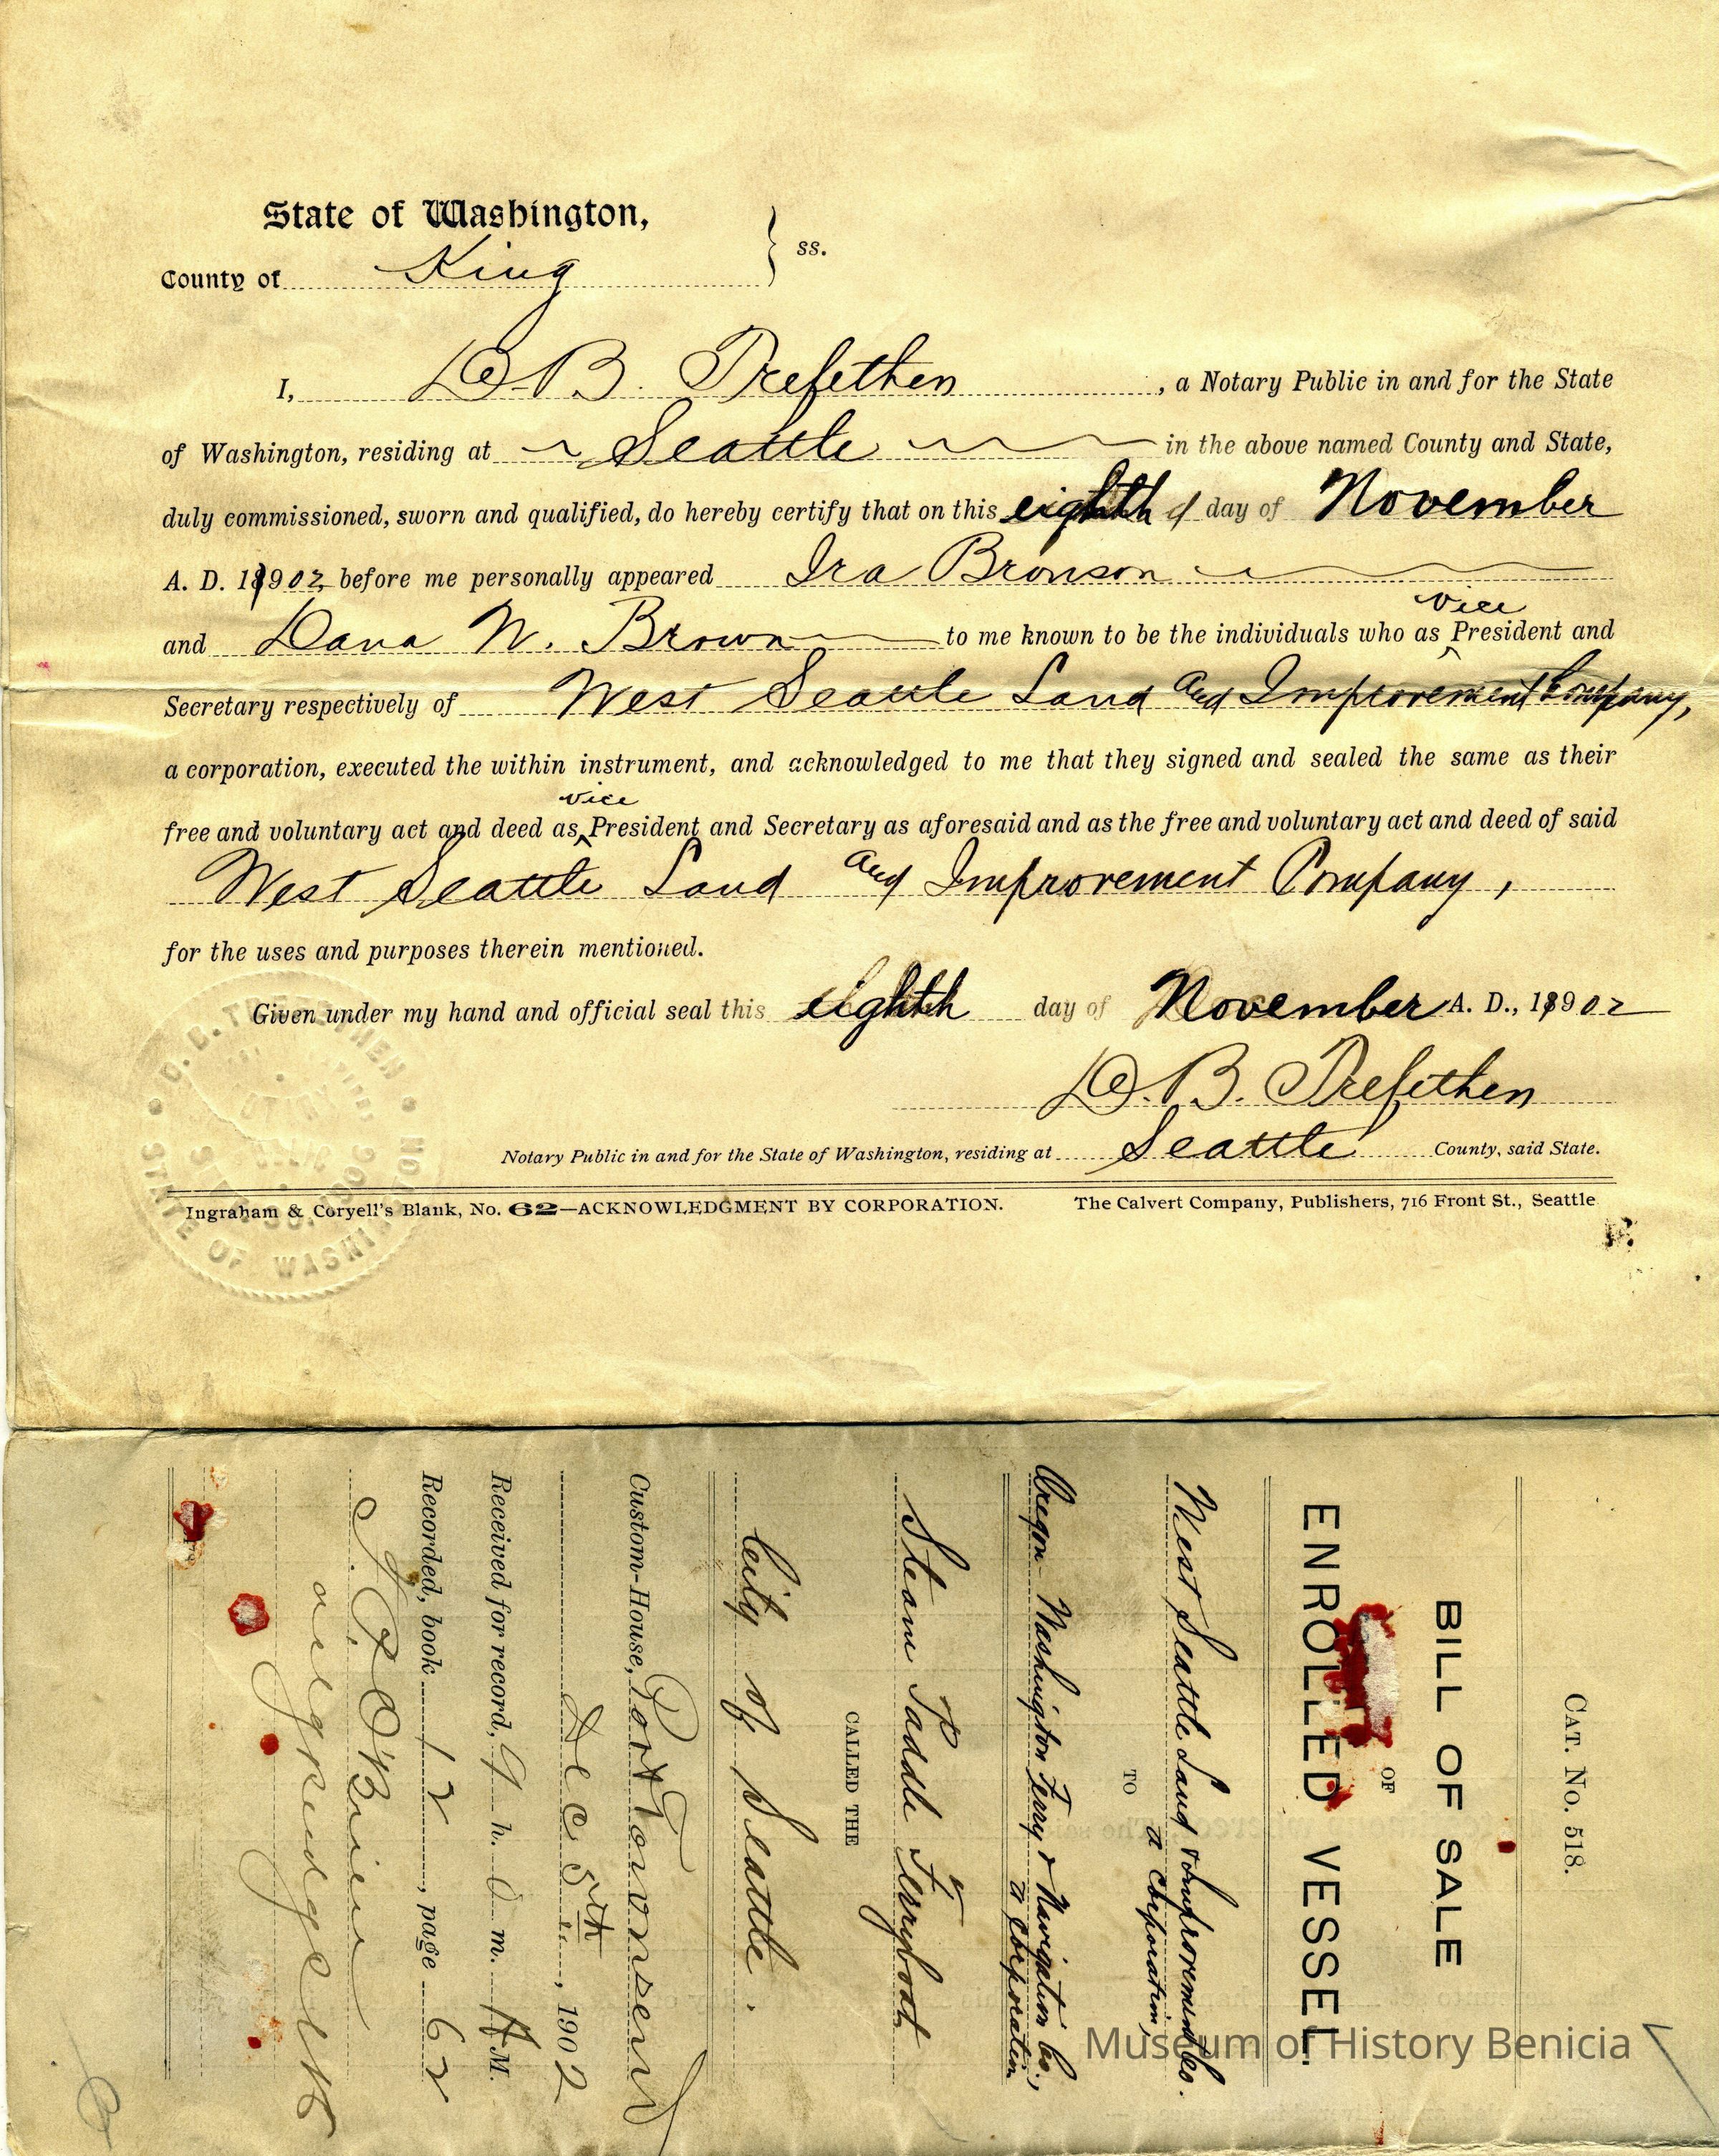 State of Washington,
County of King } ss.
I, D. B. Trefethen, a Notary Public in and for the State
of Washington, residing at Seattle in the above named County and State,
duly commissioned, sworn and qualified, do hereby certify that on this eighth day of November
A. D. 1902 before me personally appeared Ira Bronson
vice
and Dana W. Brown to me known to be the individuals who as ‸ President and
Secretary respectively of West Seattle Land and Improvement Company,
a corporation, executed the within instrument, and acknowledged to me that they signed and sealed the same as their
vice
free and voluntary act and deed as ‸ President and Secretary as aforesaid and as the free and voluntary act and deed of said
West Seattle Land and Improvement Company,
for the uses and purposes therein mentioned.
Given under my hand and official seal this eighth day of November A. D., 1902
D. B. Trefethen
Notary Public in and for the State of Washington, residing at Seattle County, said State.
Ingraham & Coryell's Blank, No. 62—ACKNOWLEDGMENT BY CORPORATION. The Calvert Company, Publishers, 716 Front St., Seattle
STATE OF WASHINGTON
CAT. No. 518.
BILL OF SALE
OF
ENROLLED VESSEL.
West Seattle Land & Improvement Co.
a Corporation,
TO
Oregon Washington Ferry & Navigation Co.,
a Corporation
Steam Paddle Ferryboat
CALLED THE
City of Seattle.
Custom-House, Port Townsend
Dec 5th, 1902
Received for record, 9 h. 0 m. A M.
Recorded, book 12, page 62
Museum of History Benicia